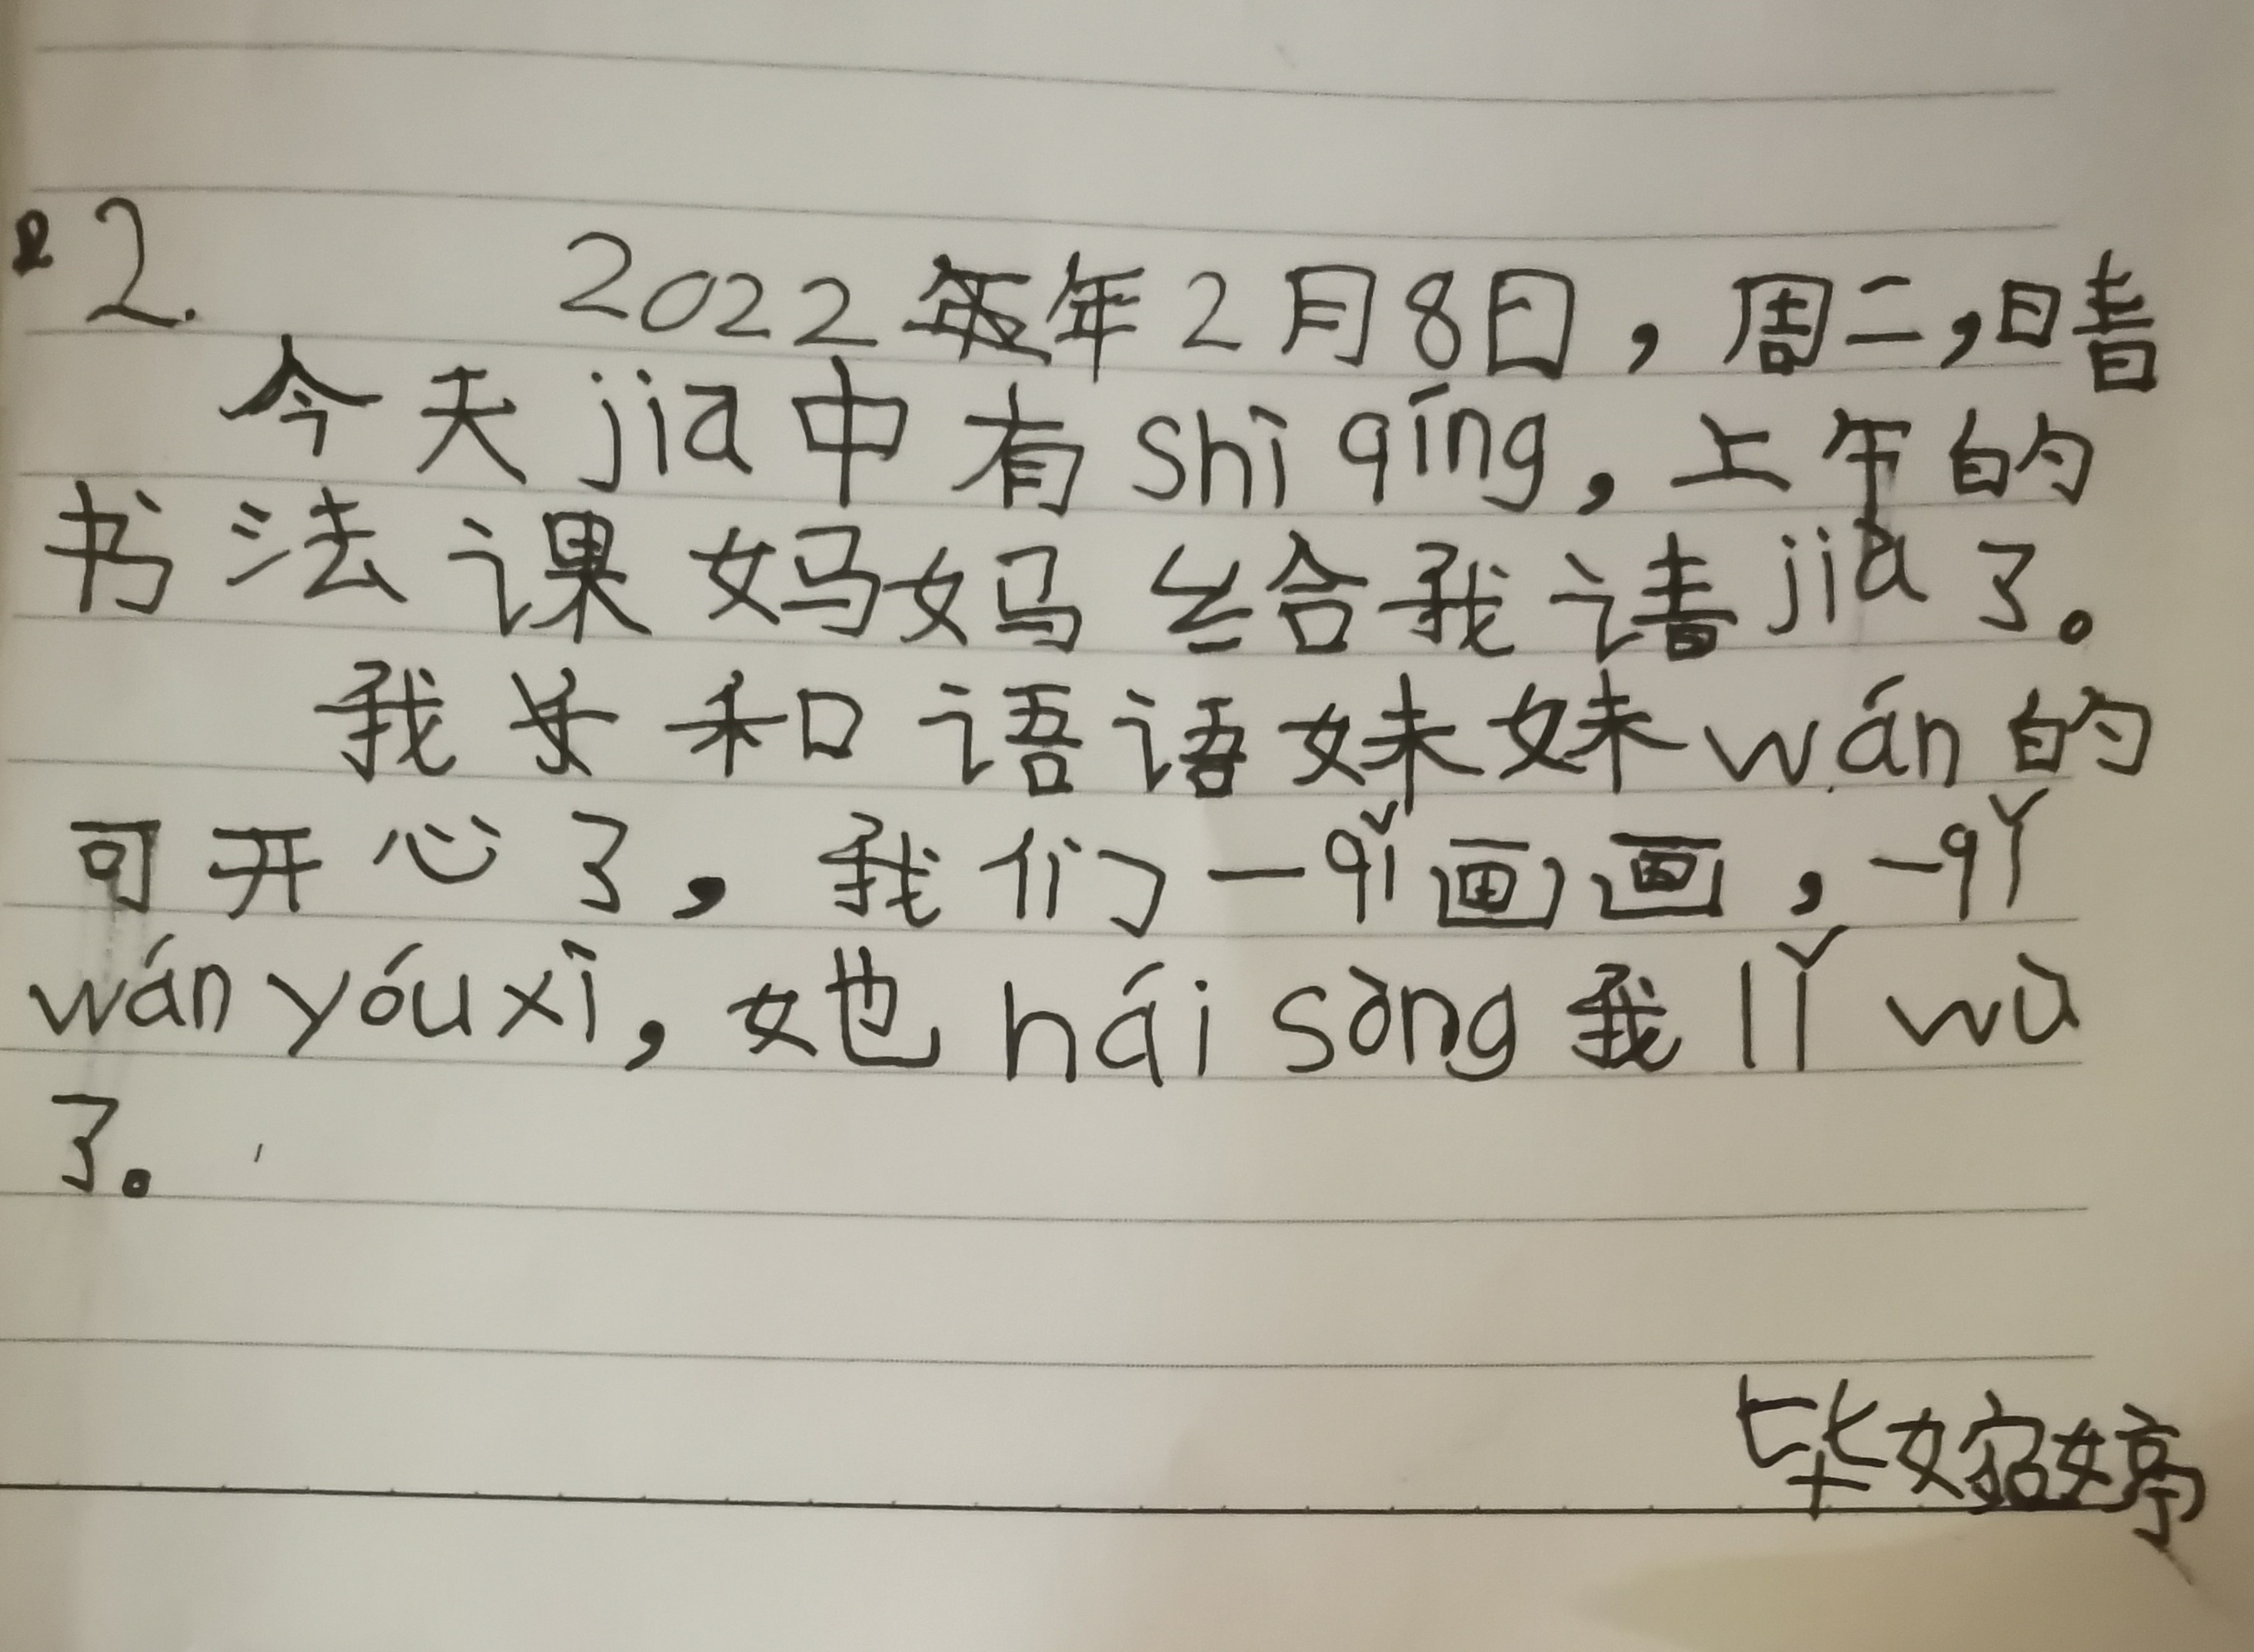 2.
2022年2月8日，周二，晴
今天jia中有shì qíng，上午的
书法课妈妈给我请jià了。
我和语语妹妹wán的
可开心了，我们一qǐ画画，一qǐ
wán yóu xì，她hái sòng我lǐ wù
了。
毕婷